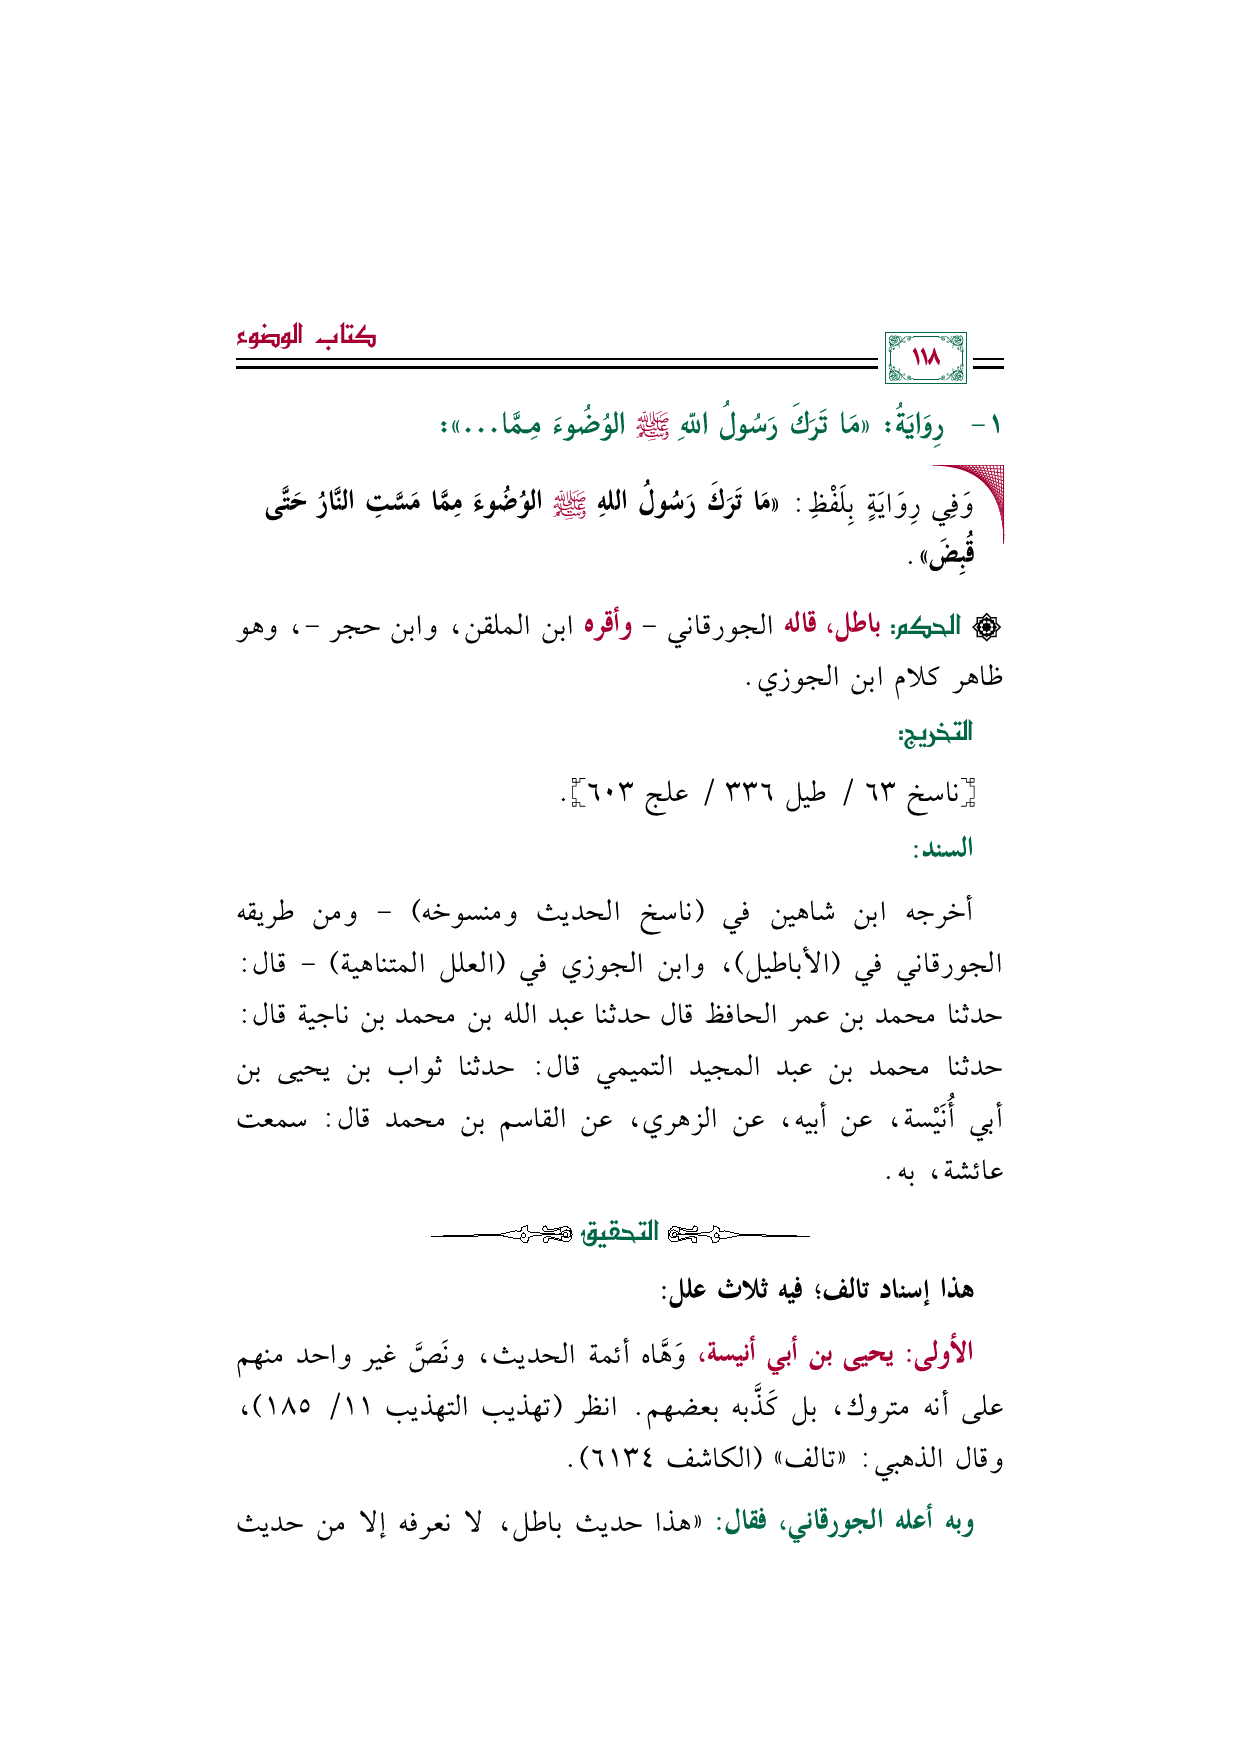 كتاب الوضوء
١١٨
١- رِوَايَةُ: «مَا تَرَكَ رَسُولُ اللهِ ﷺ الوُضُوءَ مِمَّا...»:
وَفِي رِوَايَةٍ بِلَفْظِ: «مَا تَرَكَ رَسُولُ اللهِ ﷺ الوُضُوءَ مِمَّا مَسَّتِ النَّارُ حَتَّى
قُبِضَ».
الحكم: باطل، قاله الجورقاني - وأقره ابن الملقن، وابن حجر -، وهو
ظاهر كلام ابن الجوزي.
التخريج:
[ناسخ ٦٣ / طيل ٣٣٦ / علج ٦٠٣].
السند:
أخرجه ابن شاهين في (ناسخ الحديث ومنسوخه) - ومن طريقه
الجورقاني في (الأباطيل)، وابن الجوزي في (العلل المتناهية) - قال:
حدثنا محمد بن عمر الحافظ قال حدثنا عبد الله بن محمد بن ناجية قال:
حدثنا محمد بن عبد المجيد التميمي قال: حدثنا ثواب بن يحيى بن
أبي أُنَيْسة، عن أبيه، عن الزهري، عن القاسم بن محمد قال: سمعت
عائشة، به.
التحقيق
هذا إسناد تالف؛ فيه ثلاث علل:
الأولى: يحيى بن أبي أنيسة، وَهَّاه أئمة الحديث، ونَصَّ غير واحد منهم
على أنه متروك، بل كَذَّبه بعضهم. انظر (تهذيب التهذيب ١١/ ١٨٥)،
وقال الذهبي: «تالف» (الكاشف ٦١٣٤).
وبه أعله الجورقاني، فقال: «هذا حديث باطل، لا نعرفه إلا من حديث